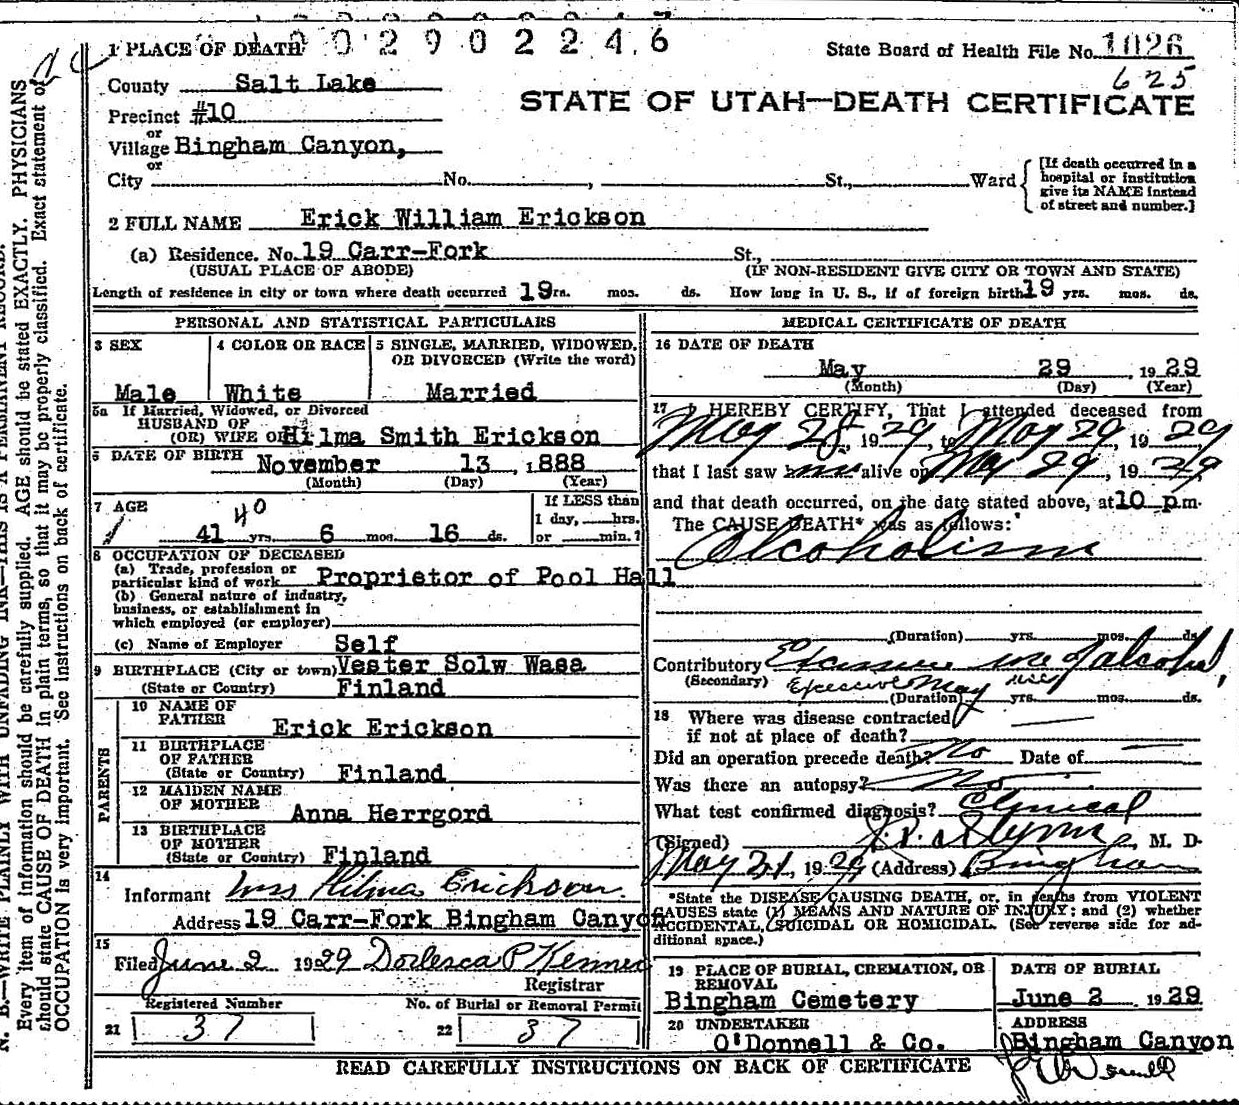 1 PLACE OF DEATH
State Board of Health File No. 1026
625
County Salt Lake
STATE OF UTAH—DEATH CERTIFICATE
Precinct #10
or
Village Bingham Canyon,
or
City No. , St., Ward
[If death occurred in a
hospital or institution
give its NAME instead
of street and number.]
2 FULL NAME Erick William Erickson
(a) Residence. No. 19 Carr-Fork St.,
(USUAL PLACE OF ABODE) (IF NON-RESIDENT GIVE CITY OR TOWN AND STATE)
Length of residence in city or town where death occurred 19rs. mos. ds. How long in U. S., if of foreign birth 19 yrs. mos. ds.
PERSONAL AND STATISTICAL PARTICULARS
3 SEX
Male
4 COLOR OR RACE
White
5 SINGLE, MARRIED, WIDOWED,
OR DIVORCED (Write the word)
Married
5a If Married, Widowed, or Divorced
HUSBAND OF
(OR) WIFE OF Hilma Smith Erickson
6 DATE OF BIRTH November 13, 1888
(Month) (Day) (Year)
7 AGE
40
41 yrs. 6 mos. 16 ds.
If LESS than
1 day, hrs.
or min.?
8 OCCUPATION OF DECEASED
(a) Trade, profession or
particular kind of work Proprietor of Pool Hall
(b) General nature of industry,
business, or establishment in
which employed (or employer)
(c) Name of Employer Self
9 BIRTHPLACE (City or town) Vester Solw Wasa
(State or Country) Finland
PARENTS
10 NAME OF
FATHER Erick Erickson
11 BIRTHPLACE
OF FATHER
(State or Country) Finland
12 MAIDEN NAME
OF MOTHER Anna Herrgord
13 BIRTHPLACE
OF MOTHER
(State or Country) Finland
14
Informant Mrs Hilma Erickson.
Address 19 Carr-Fork Bingham Canyon
15
Filed June 2 1929 Dorlesca P Kenner
Registrar
Registered Number No. of Burial or Removal Permit
21 37 22 37
MEDICAL CERTIFICATE OF DEATH
16 DATE OF DEATH
May 29, 1929
(Month) (Day) (Year)
17 I HEREBY CERTIFY, That I attended deceased from
May 28, 1929, to May 29, 1929
that I last saw him alive on May 29, 1929
and that death occurred, on the date stated above, at 10 p.m.
The CAUSE DEATH* was as follows:
Alcoholism
(Duration) yrs. mos. ds.
Contributory Excessive use of alcohol,
(Secondary) Excessive May use
(Duration) yrs. mos. ds.
18 Where was disease contracted
if not at place of death?
Did an operation precede death? No Date of
Was there an autopsy? No
What test confirmed diagnosis? Clinical
(Signed) J. P. Flynn, M. D.
May 31, 1929 (Address) Bingham
*State the DISEASE CAUSING DEATH, or, in deaths from VIOLENT
CAUSES state (1) MEANS AND NATURE OF INJURY; and (2) whether
ACCIDENTAL, SUICIDAL OR HOMICIDAL. (See reverse side for ad-
ditional space.)
19 PLACE OF BURIAL, CREMATION, OR
REMOVAL
Bingham Cemetery
DATE OF BURIAL
June 2 1929
20 UNDERTAKER
O'Donnell & Co.
ADDRESS
Bingham Canyon
J O'Donnell
READ CAREFULLY INSTRUCTIONS ON BACK OF CERTIFICATE
N. B.—WRITE PLAINLY WITH UNFADING INK—THIS IS A PERMANENT RECORD.
Every item of information should be carefully supplied. AGE should be stated EXACTLY. PHYSICIANS
should state CAUSE OF DEATH in plain terms, so that it may be properly classified. Exact statement of
OCCUPATION is very important. See instructions on back of certificate.